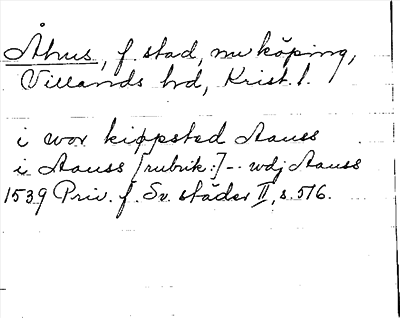 Åhus, f. stad, nu köping,
Villands hd, Krist. l.
i wor kiøpsted Aauss
i Aauss [rubrik:] -- wdj Aauss
1539 Priv. f. Sv. städer II, s. 516.